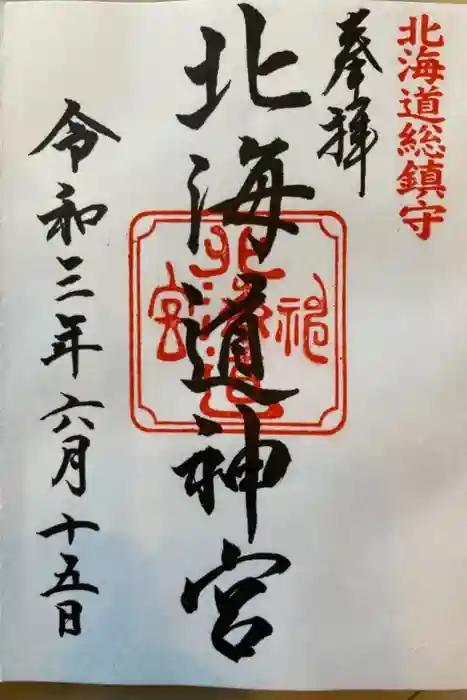 北海道総鎮守
奉拝
北海道神宮
北海道神宮
令和三年六月十五日